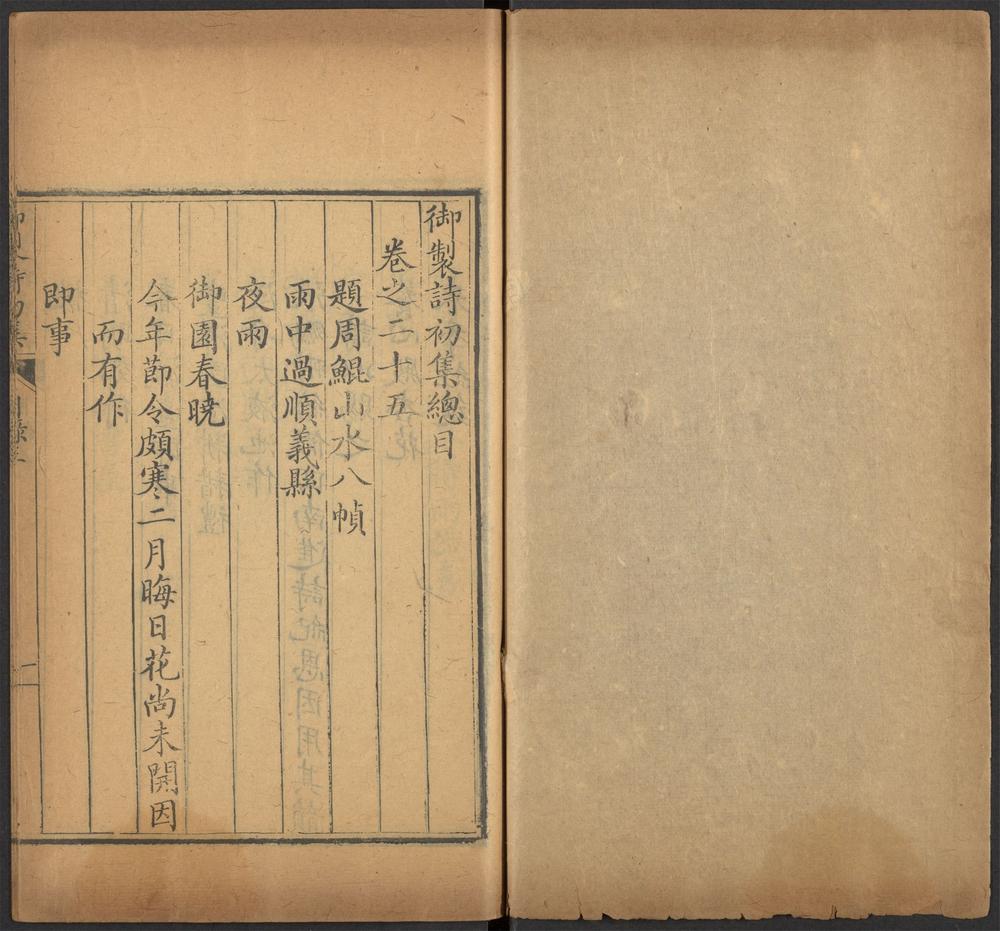 御製詩初集總目
卷之二十五
題周鯤山水八幀
雨中過順義縣
夜雨
御園春曉
今年節令頗寒二月晦日花尚未開因
而有作
即事